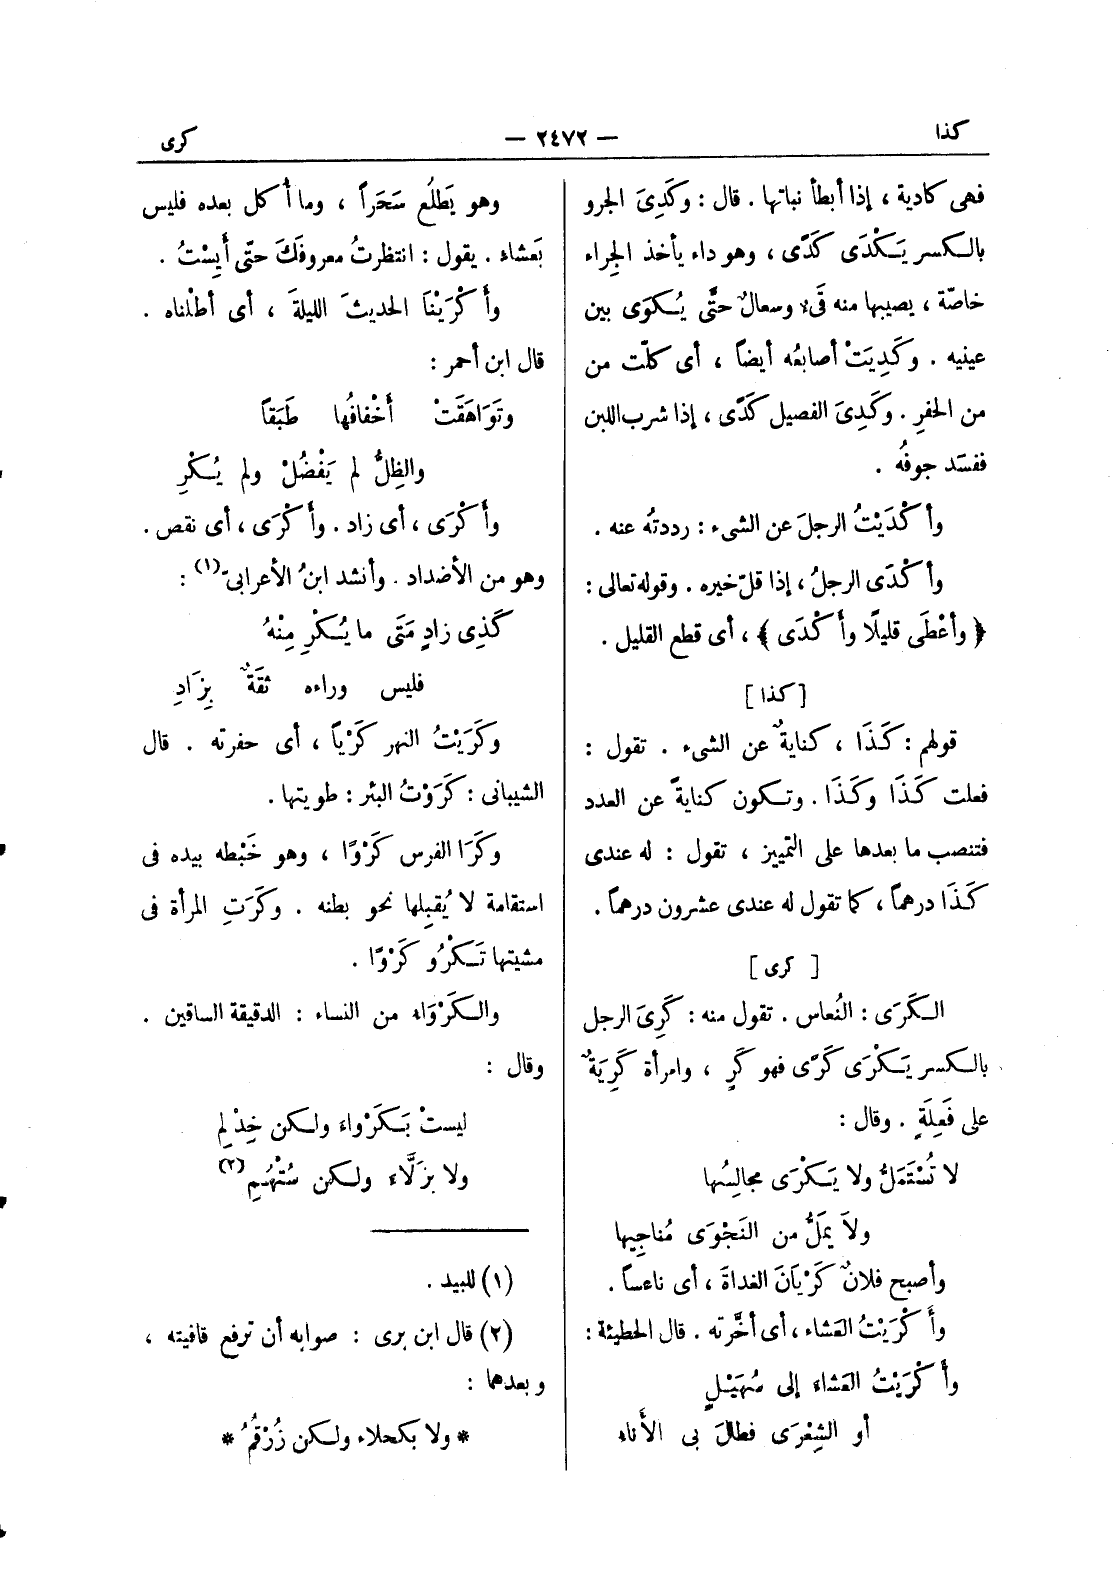 كذا
— ٢٤٧٢ —
كرى
فهى كادية ، إذا أبطأ نباتها . قال : وكَدِىَ الجرو
بالكسر يَكْدَى كَدًى ، وهو داء يأخذ الجِراء
خاصّة ، يصيبها منه قَىْءٌ وسعالٌ حتَّى يُكوَى بين
عينيه . وكَدِيَتْ أصابعُه أيضاً ، أى كلّت من
من الحفرِ . وكَدِىَ الفصيل كَدًى ، إذا شرب اللبن
ففسَد جوفُه .
وأَكْدَيْتُ الرجلَ عن الشىء : رددتهُ عنه .
وأَكْدَى الرجلُ ، إذا قلّ خيره . وقوله تعالى :
﴿ وأعْطَى قليلًا وأَكْدَى ﴾ ، أى قطع القليل .
[ كذا ]
قولهم : كَذَا ، كنايةٌ عن الشىء . تقول :
فعلت كَذَا وكَذَا . وتكون كنايةً عن العدد
فتنصب ما بعدها على التمييز ، تقول : له عندى
كَذَا درهماً ، كما تقول له عندى عشرون درهماً .
[ كرى ]
الكَرَى : النُعاس . تقول منه : كَرِىَ الرجل
بالكسر يَكْرَى كَرًى فهو كَرٍ ، وامرأة كَرِيَةٌ
على فَعِلَةٍ . وقال :
لا تُسْتَمَلُّ ولا يَكْرَى مجالِسُها
ولاَ يَمَلُّ من النَجْوَى مُناجِيها
وأصبح فلانٌ كَرْيَانَ الغداةَ ، أى ناعساً .
وأَكْرَيْتُ العَشاء ، أى أخَّرته . قال الحطيئة :
وأَكْرَيْتُ العَشاءَ إلى سُهَيْلٍ
أو الشِعْرَى فطالَ بى الأَناء
وهو يَطْلُع سَحَراً ، وما أُكل بعده فليس
بَعشاء . يقول : انتظرتُ معروفَكَ حتّى أَيِسْتُ .
وأَكْرَيْنَا الحديثَ الليلةَ ، أى أطلْناه .
قال ابن أحمر :
وتَوَاهَقَتْ أَخْفافُها طَبَقاً
والظِلُّ لم يَفْضُلْ ولم يُكْرِ
وأَكْرَى ، أى زاد . وأَكْرَى ، أى نقص .
وهو من الأضداد . وأنشد ابنُ الأعرابىّ (١) :
كَذِى زادٍ مَتَى ما يُكْرِ مِنْهُ
فليس وراءه ثقَةٌ بِزَادِ
وكَرَيْتُ النهر كَرْياً ، أى حفرته . قال
الشيبانى : كَرَوْتُ البئر : طويتها .
وكَرَا الفرس كَرْوًا ، وهو خَبْطه بيده فى
استقامة لا يُقبِلها نحو بطنه . وكَرَتِ المرأة فى
مشيتها تَكْرُو كَرْوًا .
والكَرْوَاء من النساء : الدقيقة الساقين .
وقال :
ليستْ بكَرْواءَ ولكن خِدْلِمِ
ولا بزَلَّاءَ ولكن سُتْهُمِ (٢)
(١) للبيد .
(٢) قال ابن برى : صوابه أن ترفع قافيته ،
وبعدهما :
* ولا بكحلاء ولكن زُرْقُمُ *